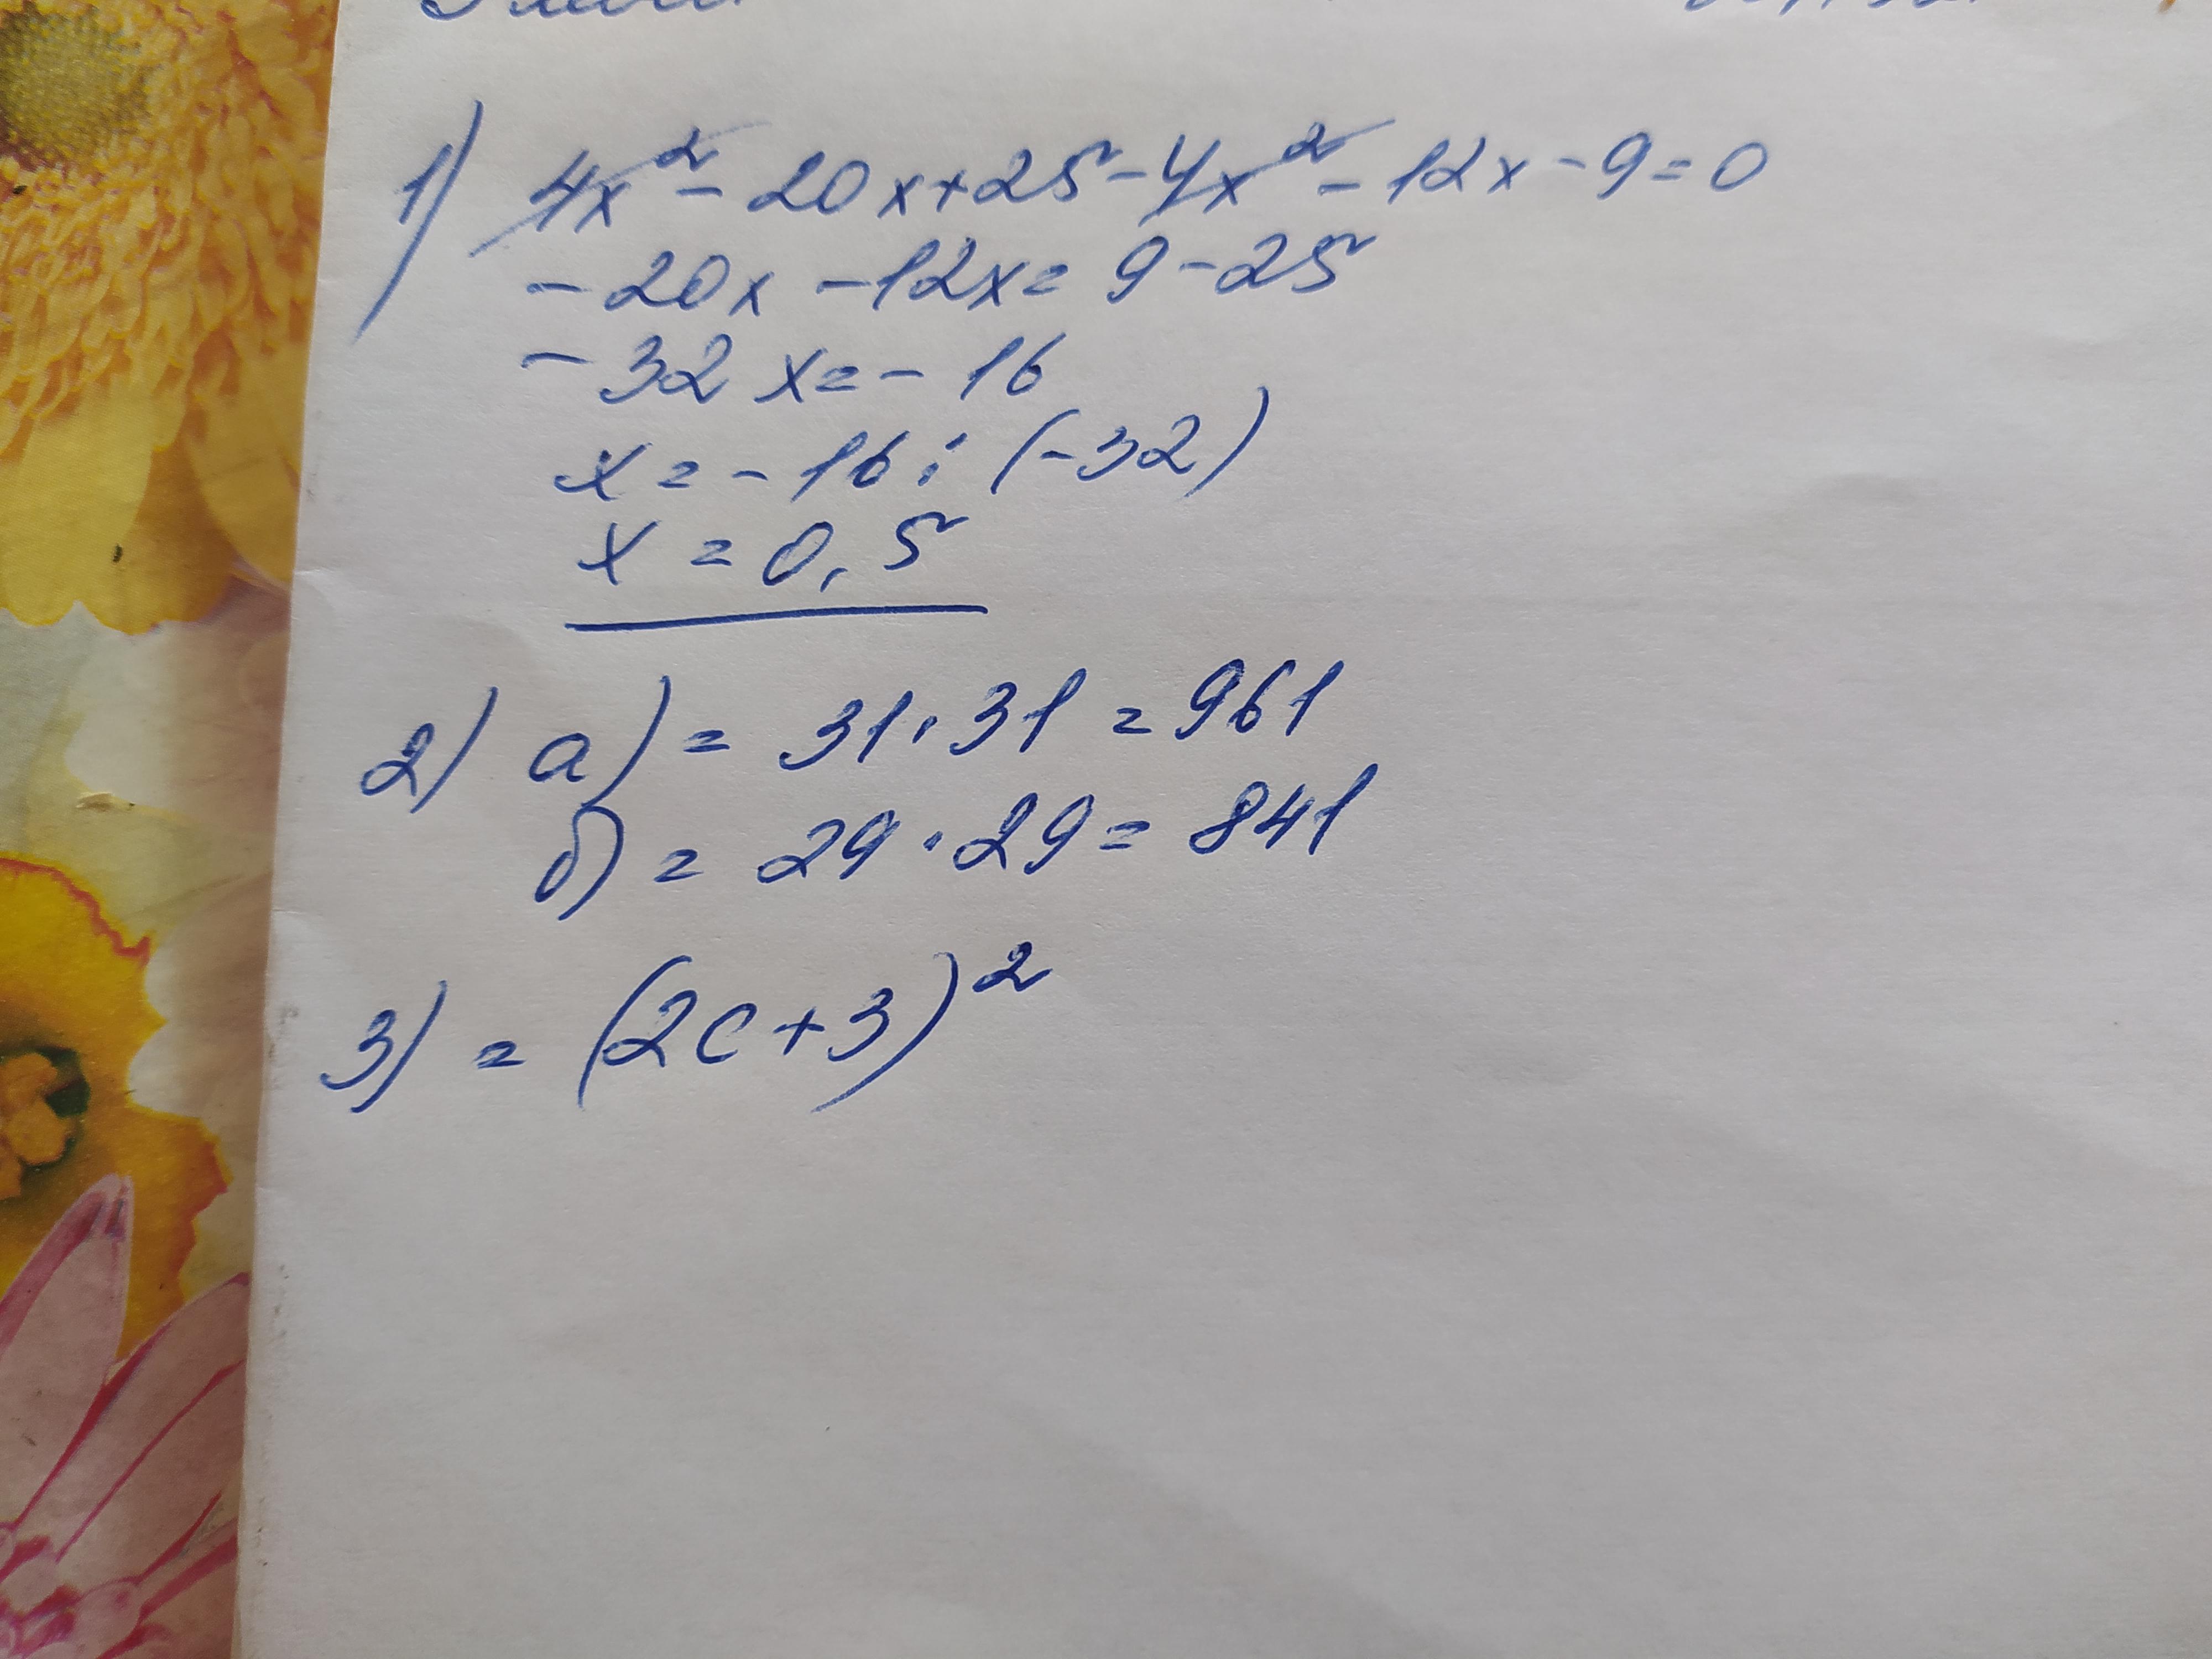 1) 4x² - 20x + 25 - 4x² - 12x - 9 = 0
- 20x - 12x = 9 - 25
- 32x = - 16
x = - 16 : (-32)
x = 0,5
2) а) = 31 · 31 = 961
б) = 29 · 29 = 841
3) = (2c + 3)²